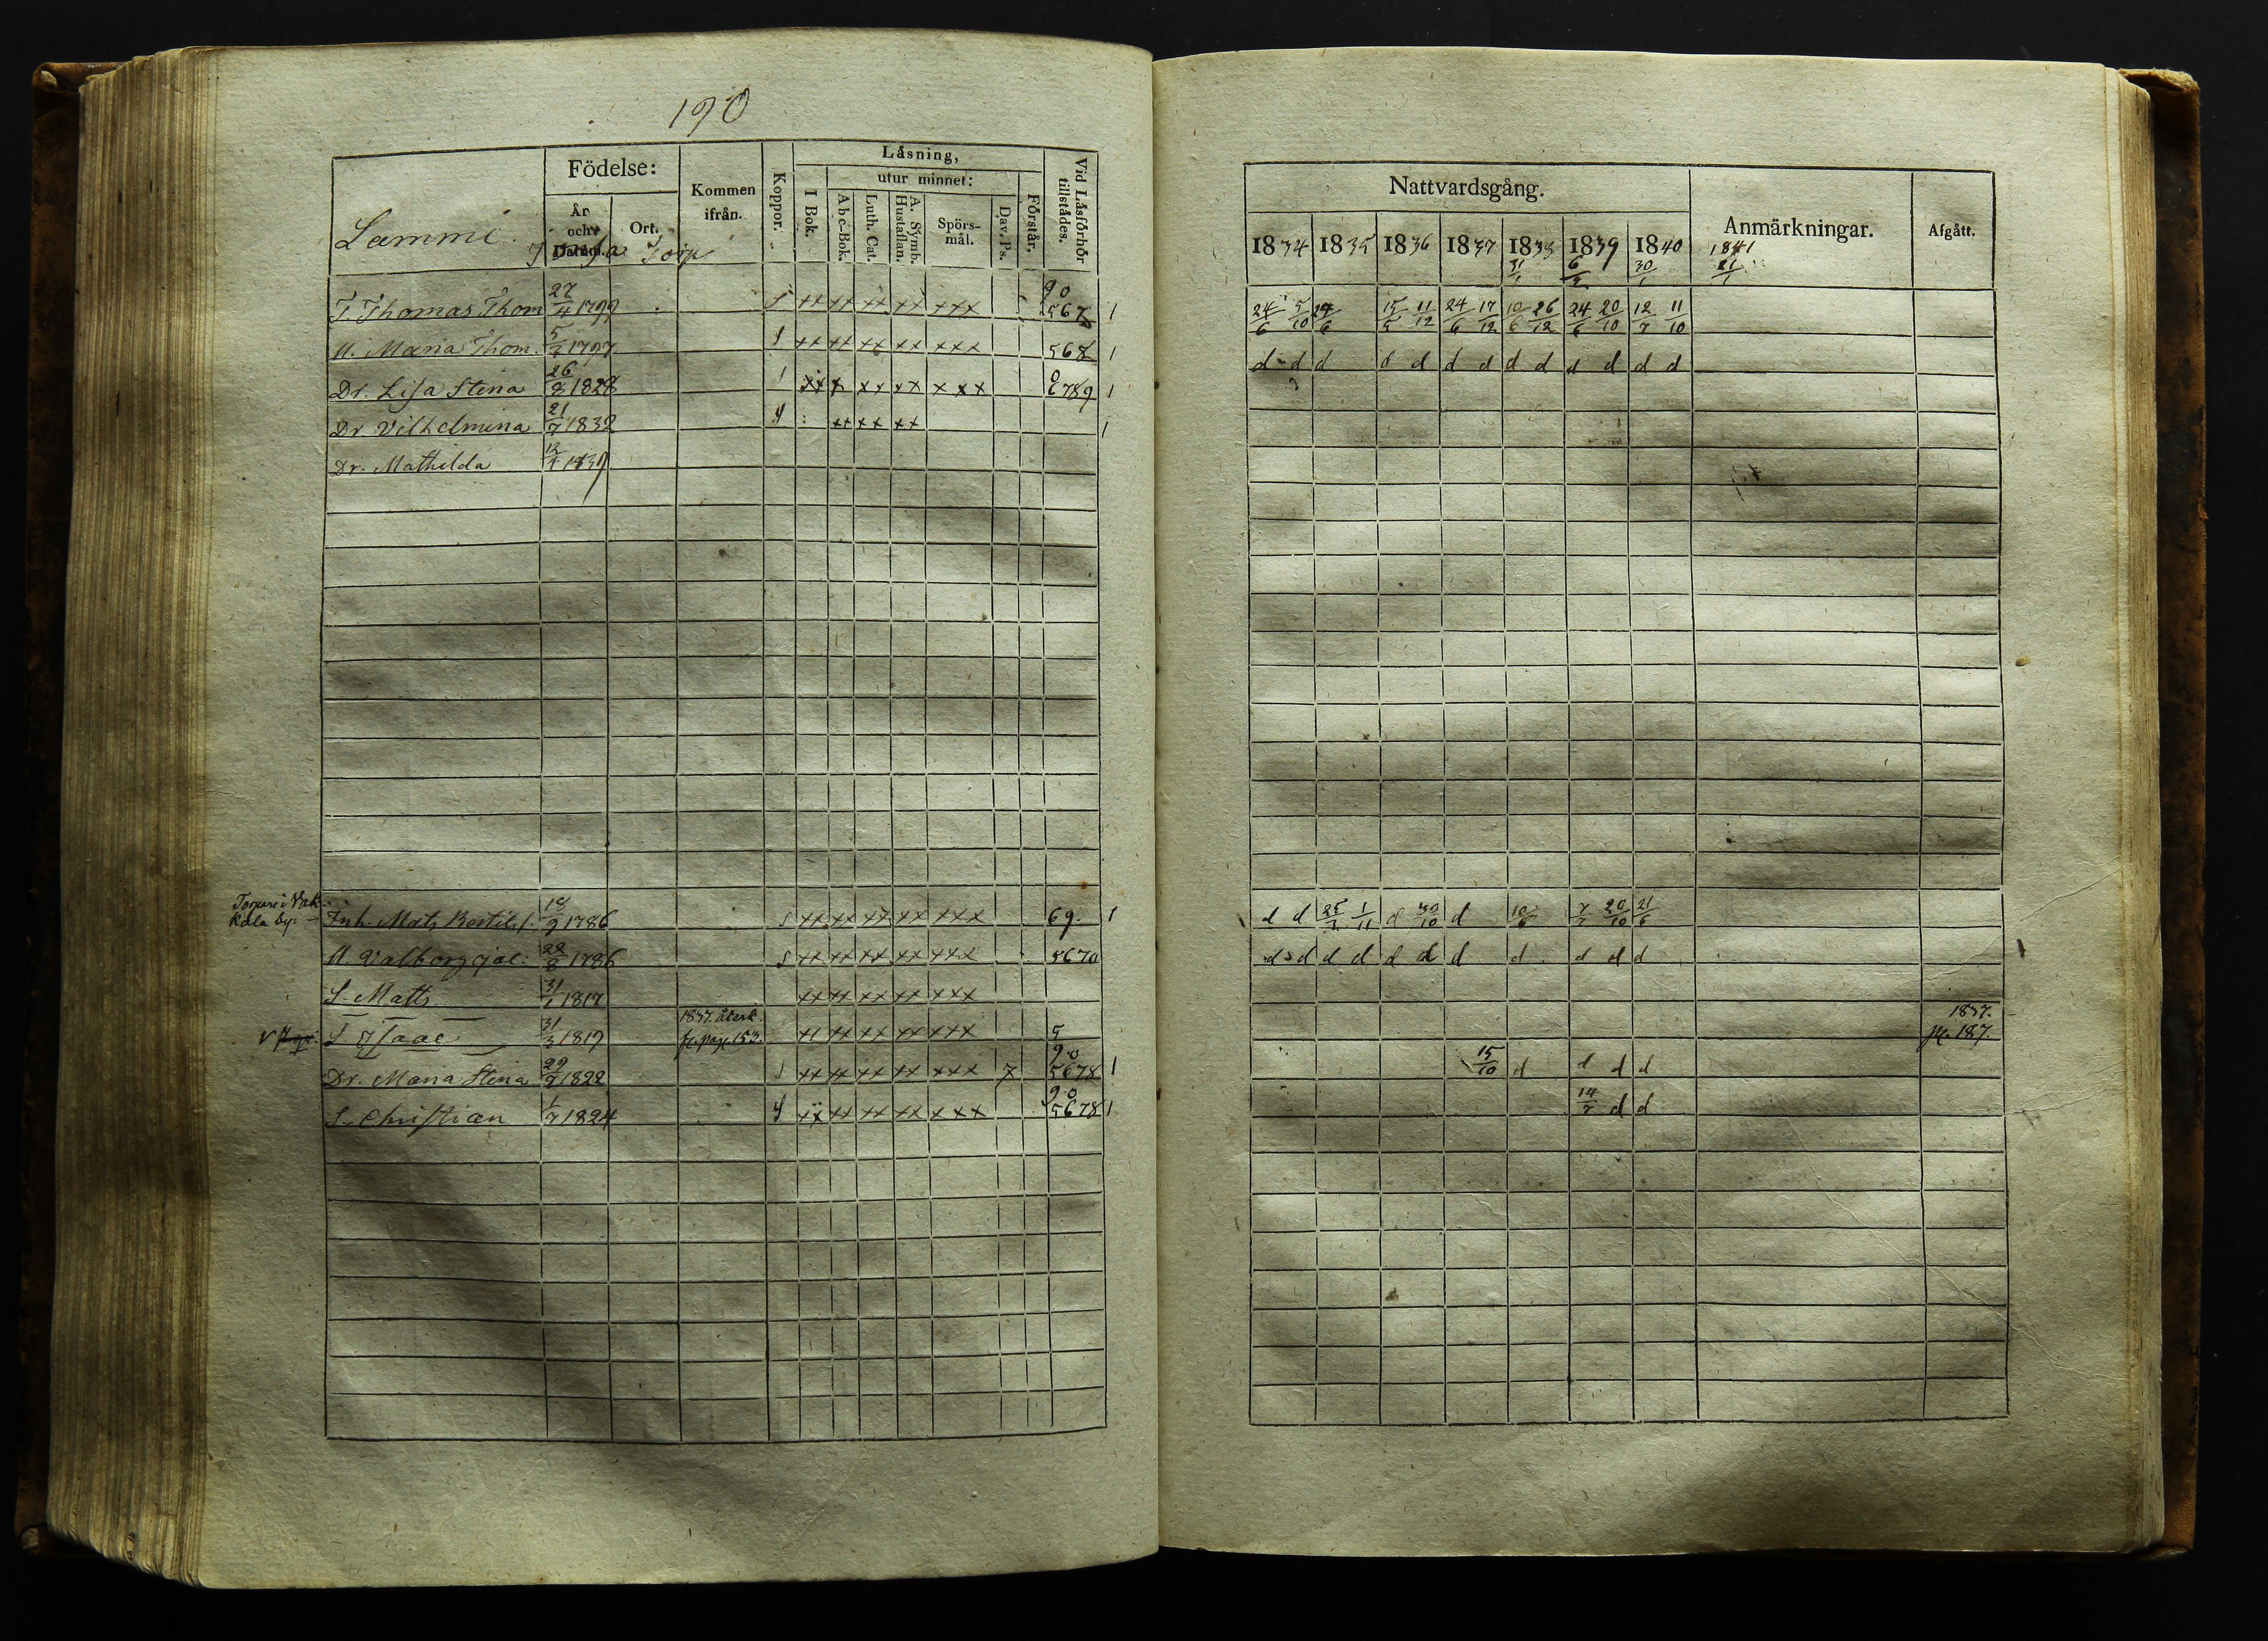 190
Födelse: Kommen ifrån. Koppor. Läsning, Vid Läsförhör tillstådes.
utur minnet:
Lammi. År och Datum. Ort. I Bok. Abc-Bok. Luth. Cat. A. Symb. Hustaflan. Spörs-mål. Dav. Ps. Förstår.
Torp
T. Thomas Thom 27/4 1799 S xx xx xx xx xxx 90 567 1
U. Maria Thom. 5/3 1797 S xx xx xx xx xxx 568 1
Dr. Lisa Stena 26/8 1828 1 xx x xx xx xxx 0 6789 1
Dr Vilhelmina 21/7 1832 S xx xx xx 1
Dr. Mathilda 12/4 1839
Torpare i Vak-
kala by: Inh. Mats Bertils. 18/9 1786 S xx xx xx xx xxx 69. 1
U. Valborg Jac: 22/8 1786 S xx xx xx xx xxx 5670
S. Matts 31/1 1817 xx xx xx xx xxx
S Isaac 31/3 1819 1837. återk. fr. pag. 153. xx xx xx xx xxx 5
Dr. Maria Stina 29/7 1822 S xx xx xx xx xxx 7 90 5678 1
S. Christian 1/7 1824 S xx xx xx xx xxx 90 5678 1
Nattvardsgång. Anmärkningar. Afgått.
1834 1835 1836 1837 1838 1839 1840 1841
31/1 30/1 21/1
24/6 5/10 24/6 15/5 11/12 24/6 17/12 10/6 26/12 24/6 20/10 12/7 11/10
d d d d d d d d d d d d d
d d 25/7 1/11 d 30/10 d 10/6 7/7 20/10 21/6
d d d d d d d d d d d
1837.
pag. 187.
15/10 d d d d
14/7 d d